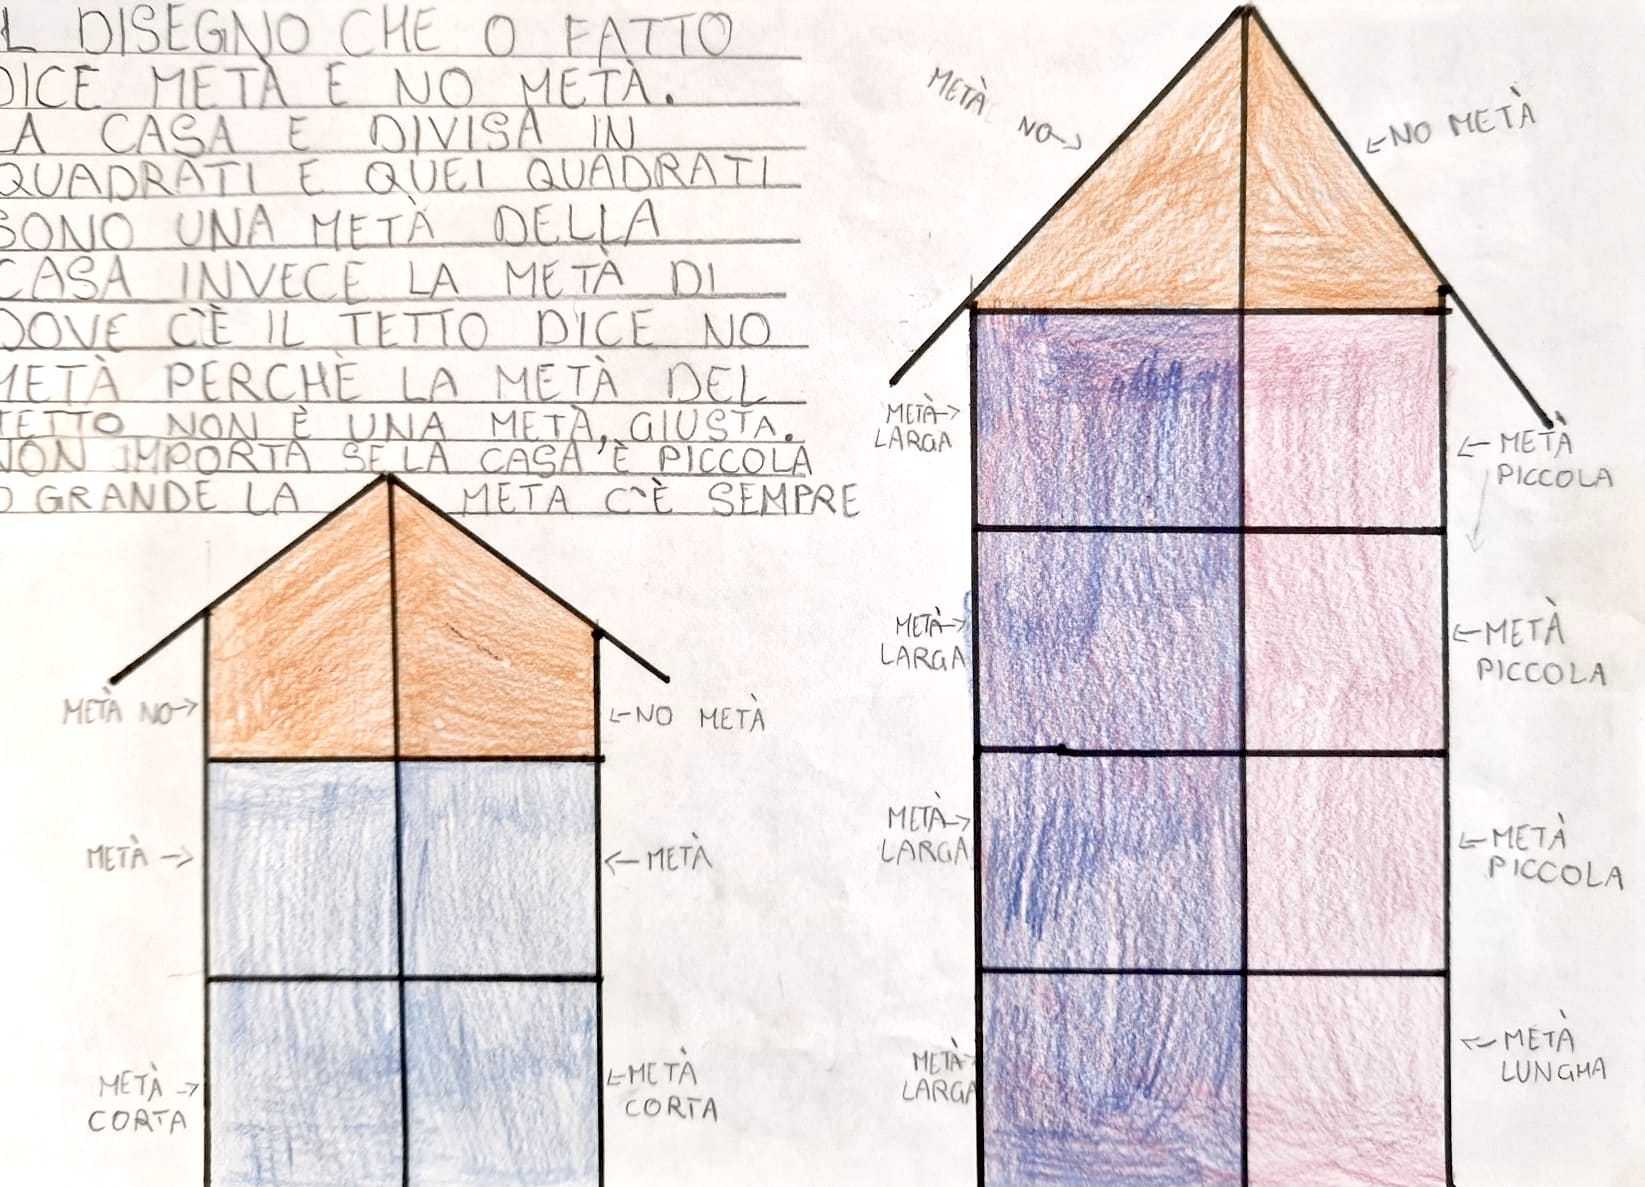 L DISEGNO CHE O FATTO
DICE METÀ E NO METÀ.
A CASA E DIVISA IN
QUADRATI E QUEI QUADRATI
SONO UNA METÀ DELLA
CASA INVECE LA METÀ DI
DOVE C'È IL TETTO DICE NO
METÀ PERCHÈ LA METÀ DEL
TETTO NON È UNA METÀ, GIUSTA.
NON IMPORTA SE LA CASA È PICCOLA
O GRANDE LA META C'È SEMPRE
METÀ NO→
←NO METÀ
METÀ →
← METÀ
METÀ →
CORTA
←METÀ
CORTA
METÀ NO→
←NO METÀ
METÀ→
LARGA
← METÀ
PICCOLA
METÀ→
LARGA
←METÀ
PICCOLA
METÀ→
LARGA
← METÀ
PICCOLA
METÀ→
LARGA
← METÀ
LUNGHA